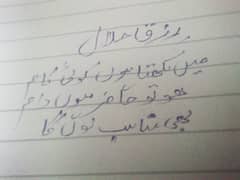 رزق حلال
میں لکھتا ہوں کوئی کام
ہو تو حاضر ہوں دام
بھی مناسب لوں گا